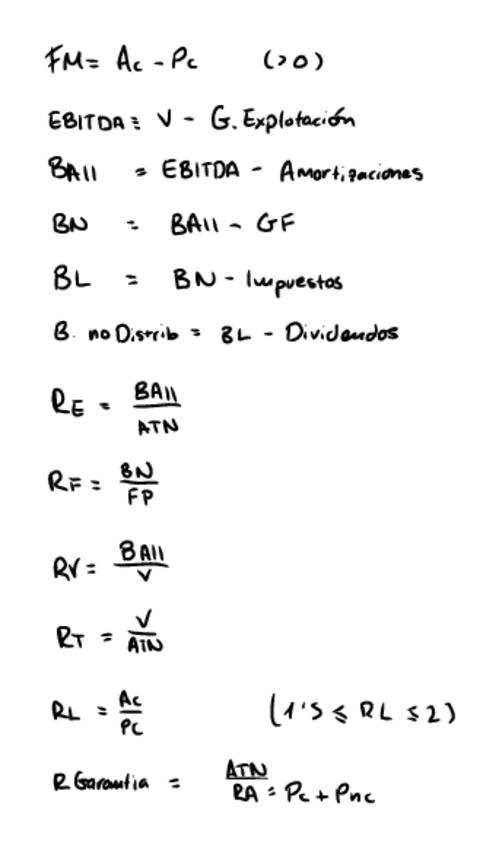 FM = Ac - Pc (>0)
EBITDA = V - G. Explotación
BAII = EBITDA - Amortizaciones
BN = BAII - GF
BL = BN - Impuestos
B. no Distrib = BL - Dividendos
RE = BAII / ATN
RF = BN / FP
RV = BAII / V
RT = V / ATN
RL = Ac / Pc (1'5 ≤ RL ≤ 2)
R Garantia = ATN / RA = Pc + Pnc